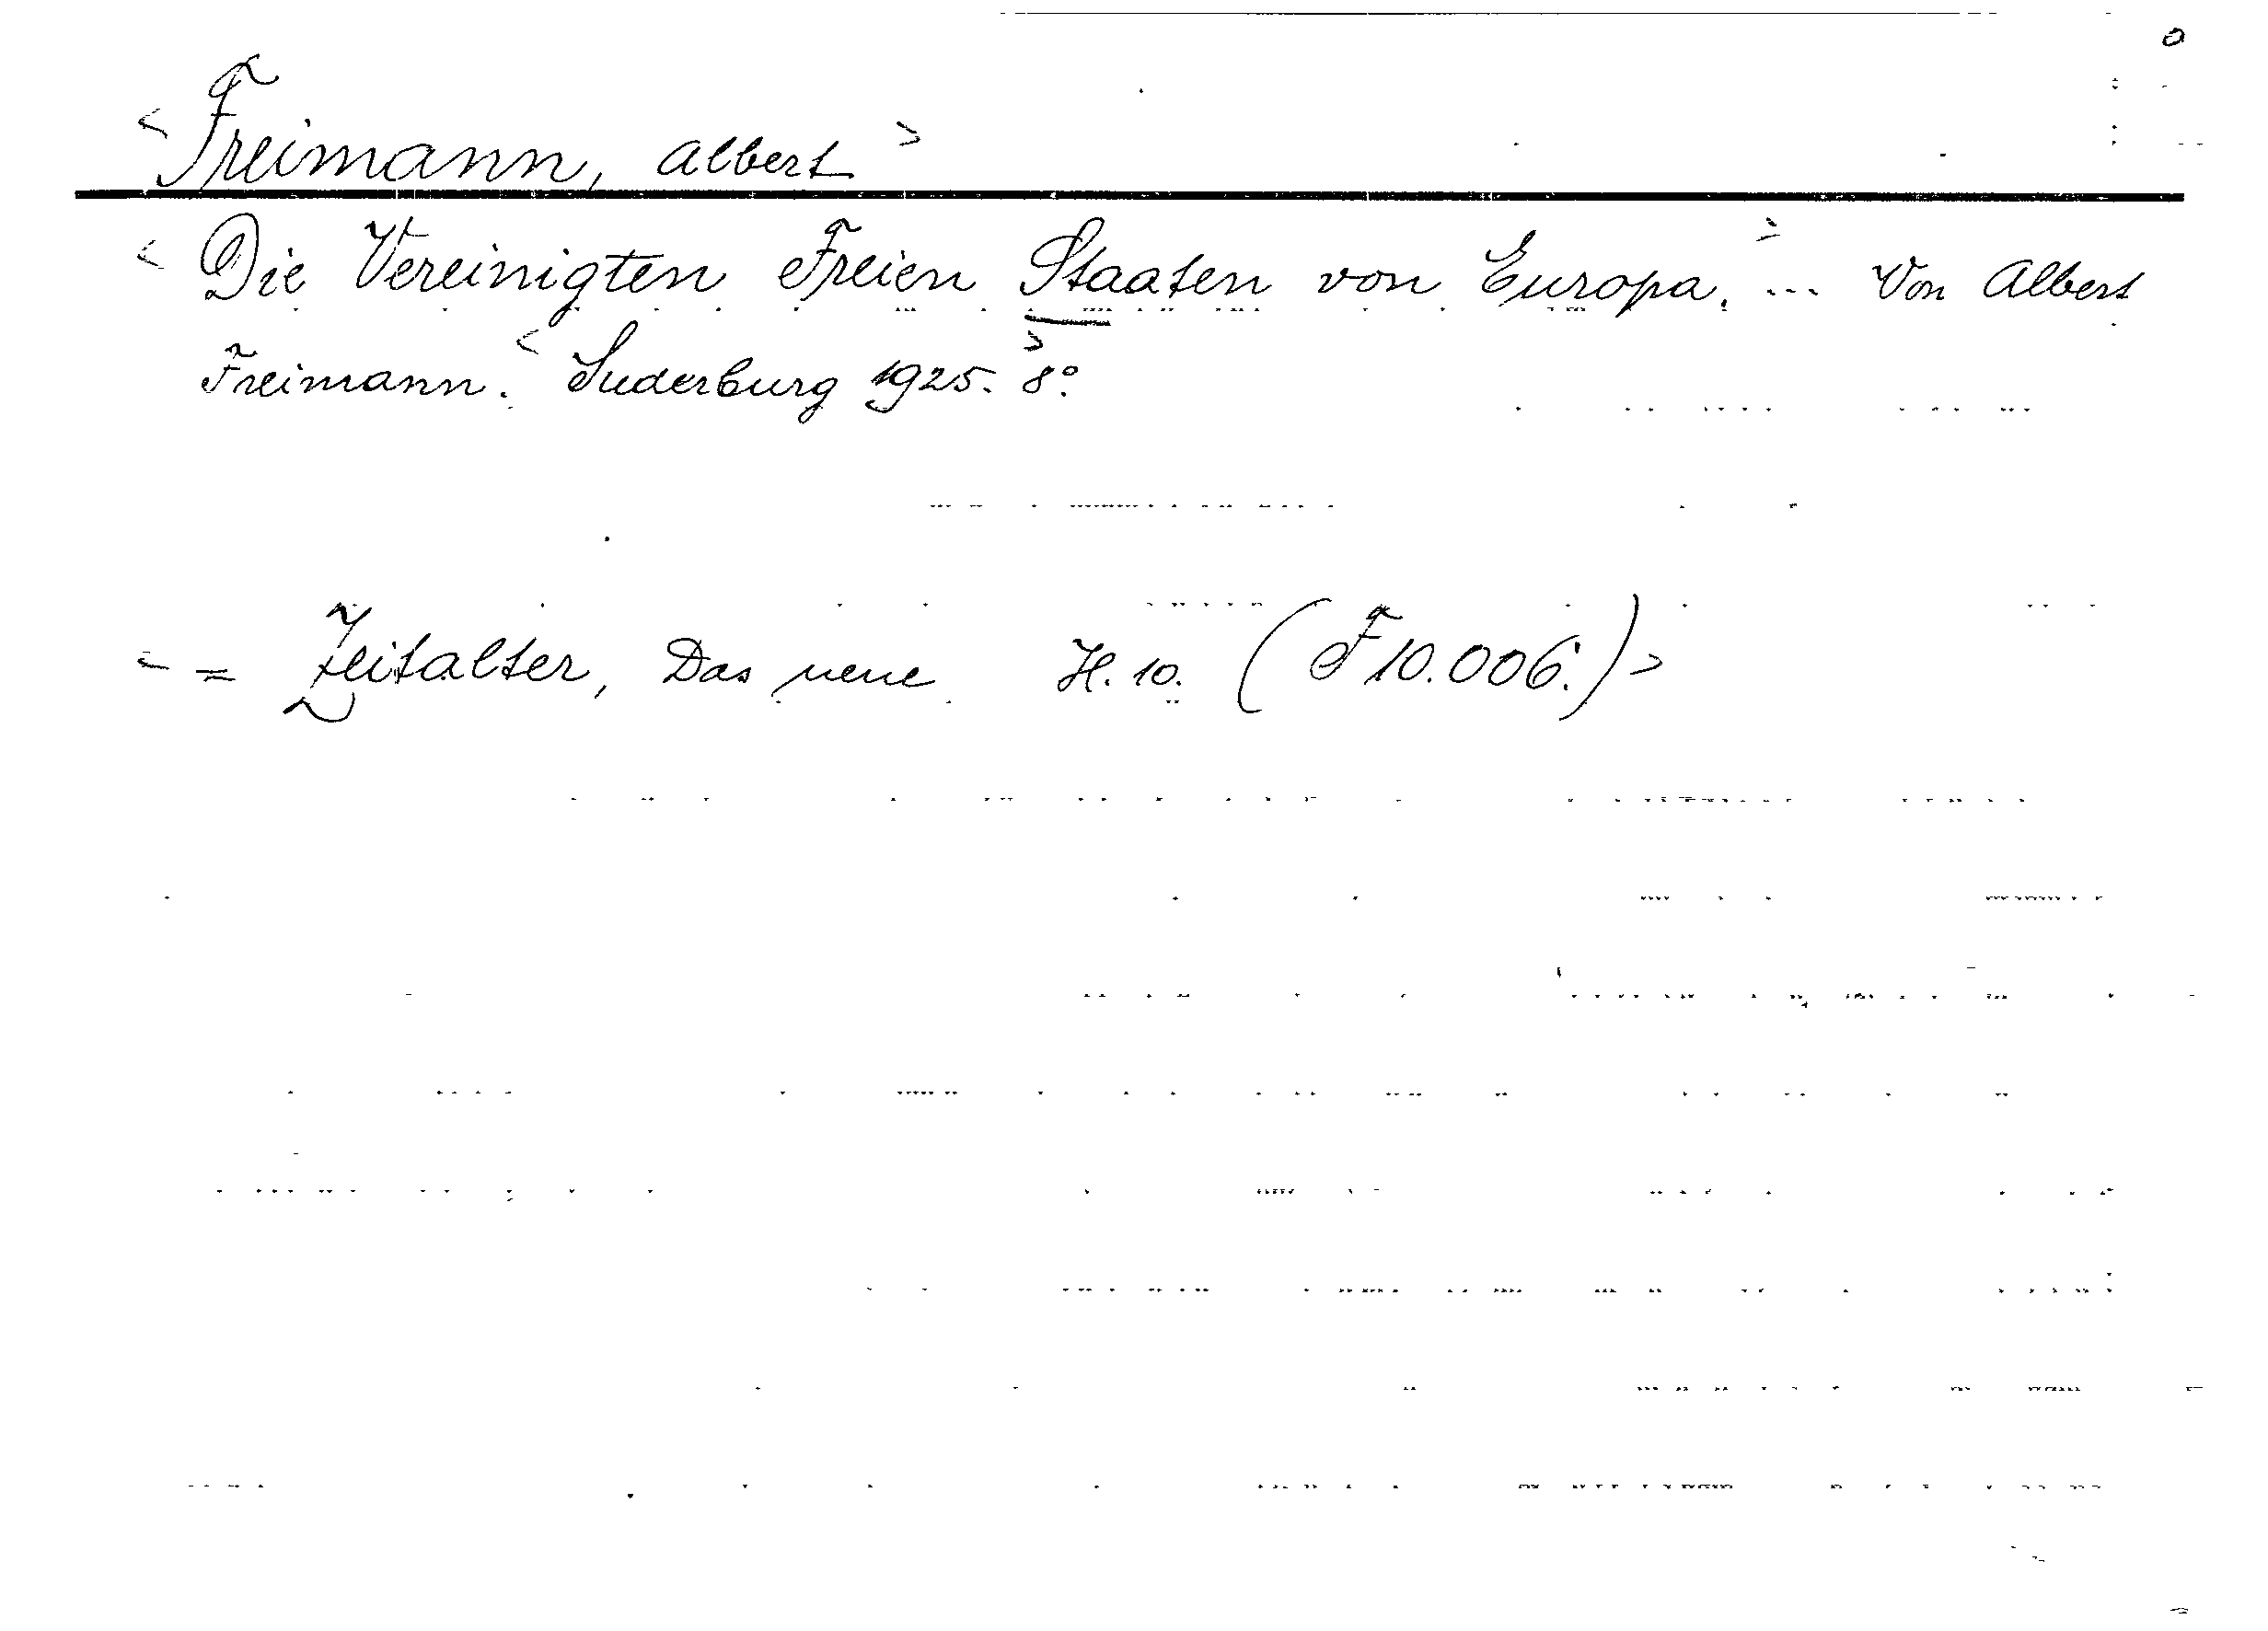 <Freimann, Albert>
<Die Vereinigten Freien Staaten von Europa.> ... Von Albert
Freimann. <Suderburg 1925.> 8°.
<= Zeitalter, Das neue H. 10. (F 10.006.)>